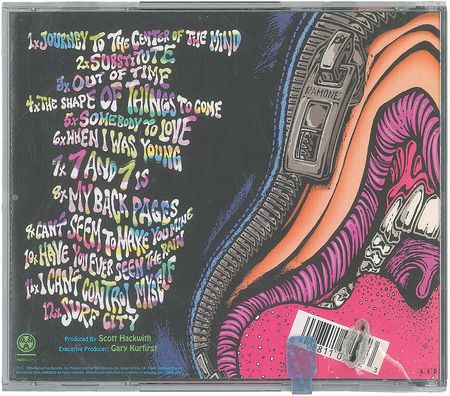 1x JOURNEY TO THE CENTER OF THE MIND
2x SUBSTITUTE
3x OUT OF TIME
4x THE SHAPE OF THINGS TO COME
5x SOMEBODY TO LOVE
6x WHEN I WAS YOUNG
7x 7 AND 7 IS
8x MY BACK PAGES
9x CAN'T SEEM TO MAKE YOU MINE
10x HAVE YOU EVER SEEN THE RAIN
11x I CAN'T CONTROL MYSELF
12x SURF CITY
Produced By Scott Hackwith
Executive Producer: Gary Kurfirst
RAMONES
AAD